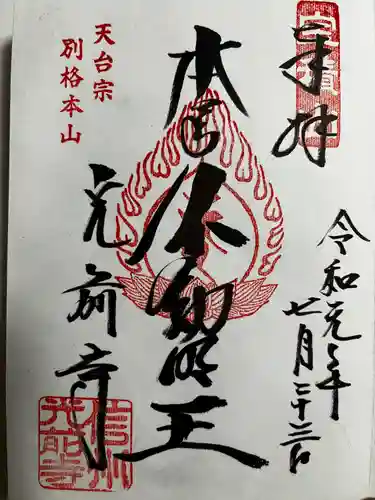 奉拝
令和元年
七月二十三日
本尊
不動明王
天台宗
別格本山
光前寺
信州
光前寺